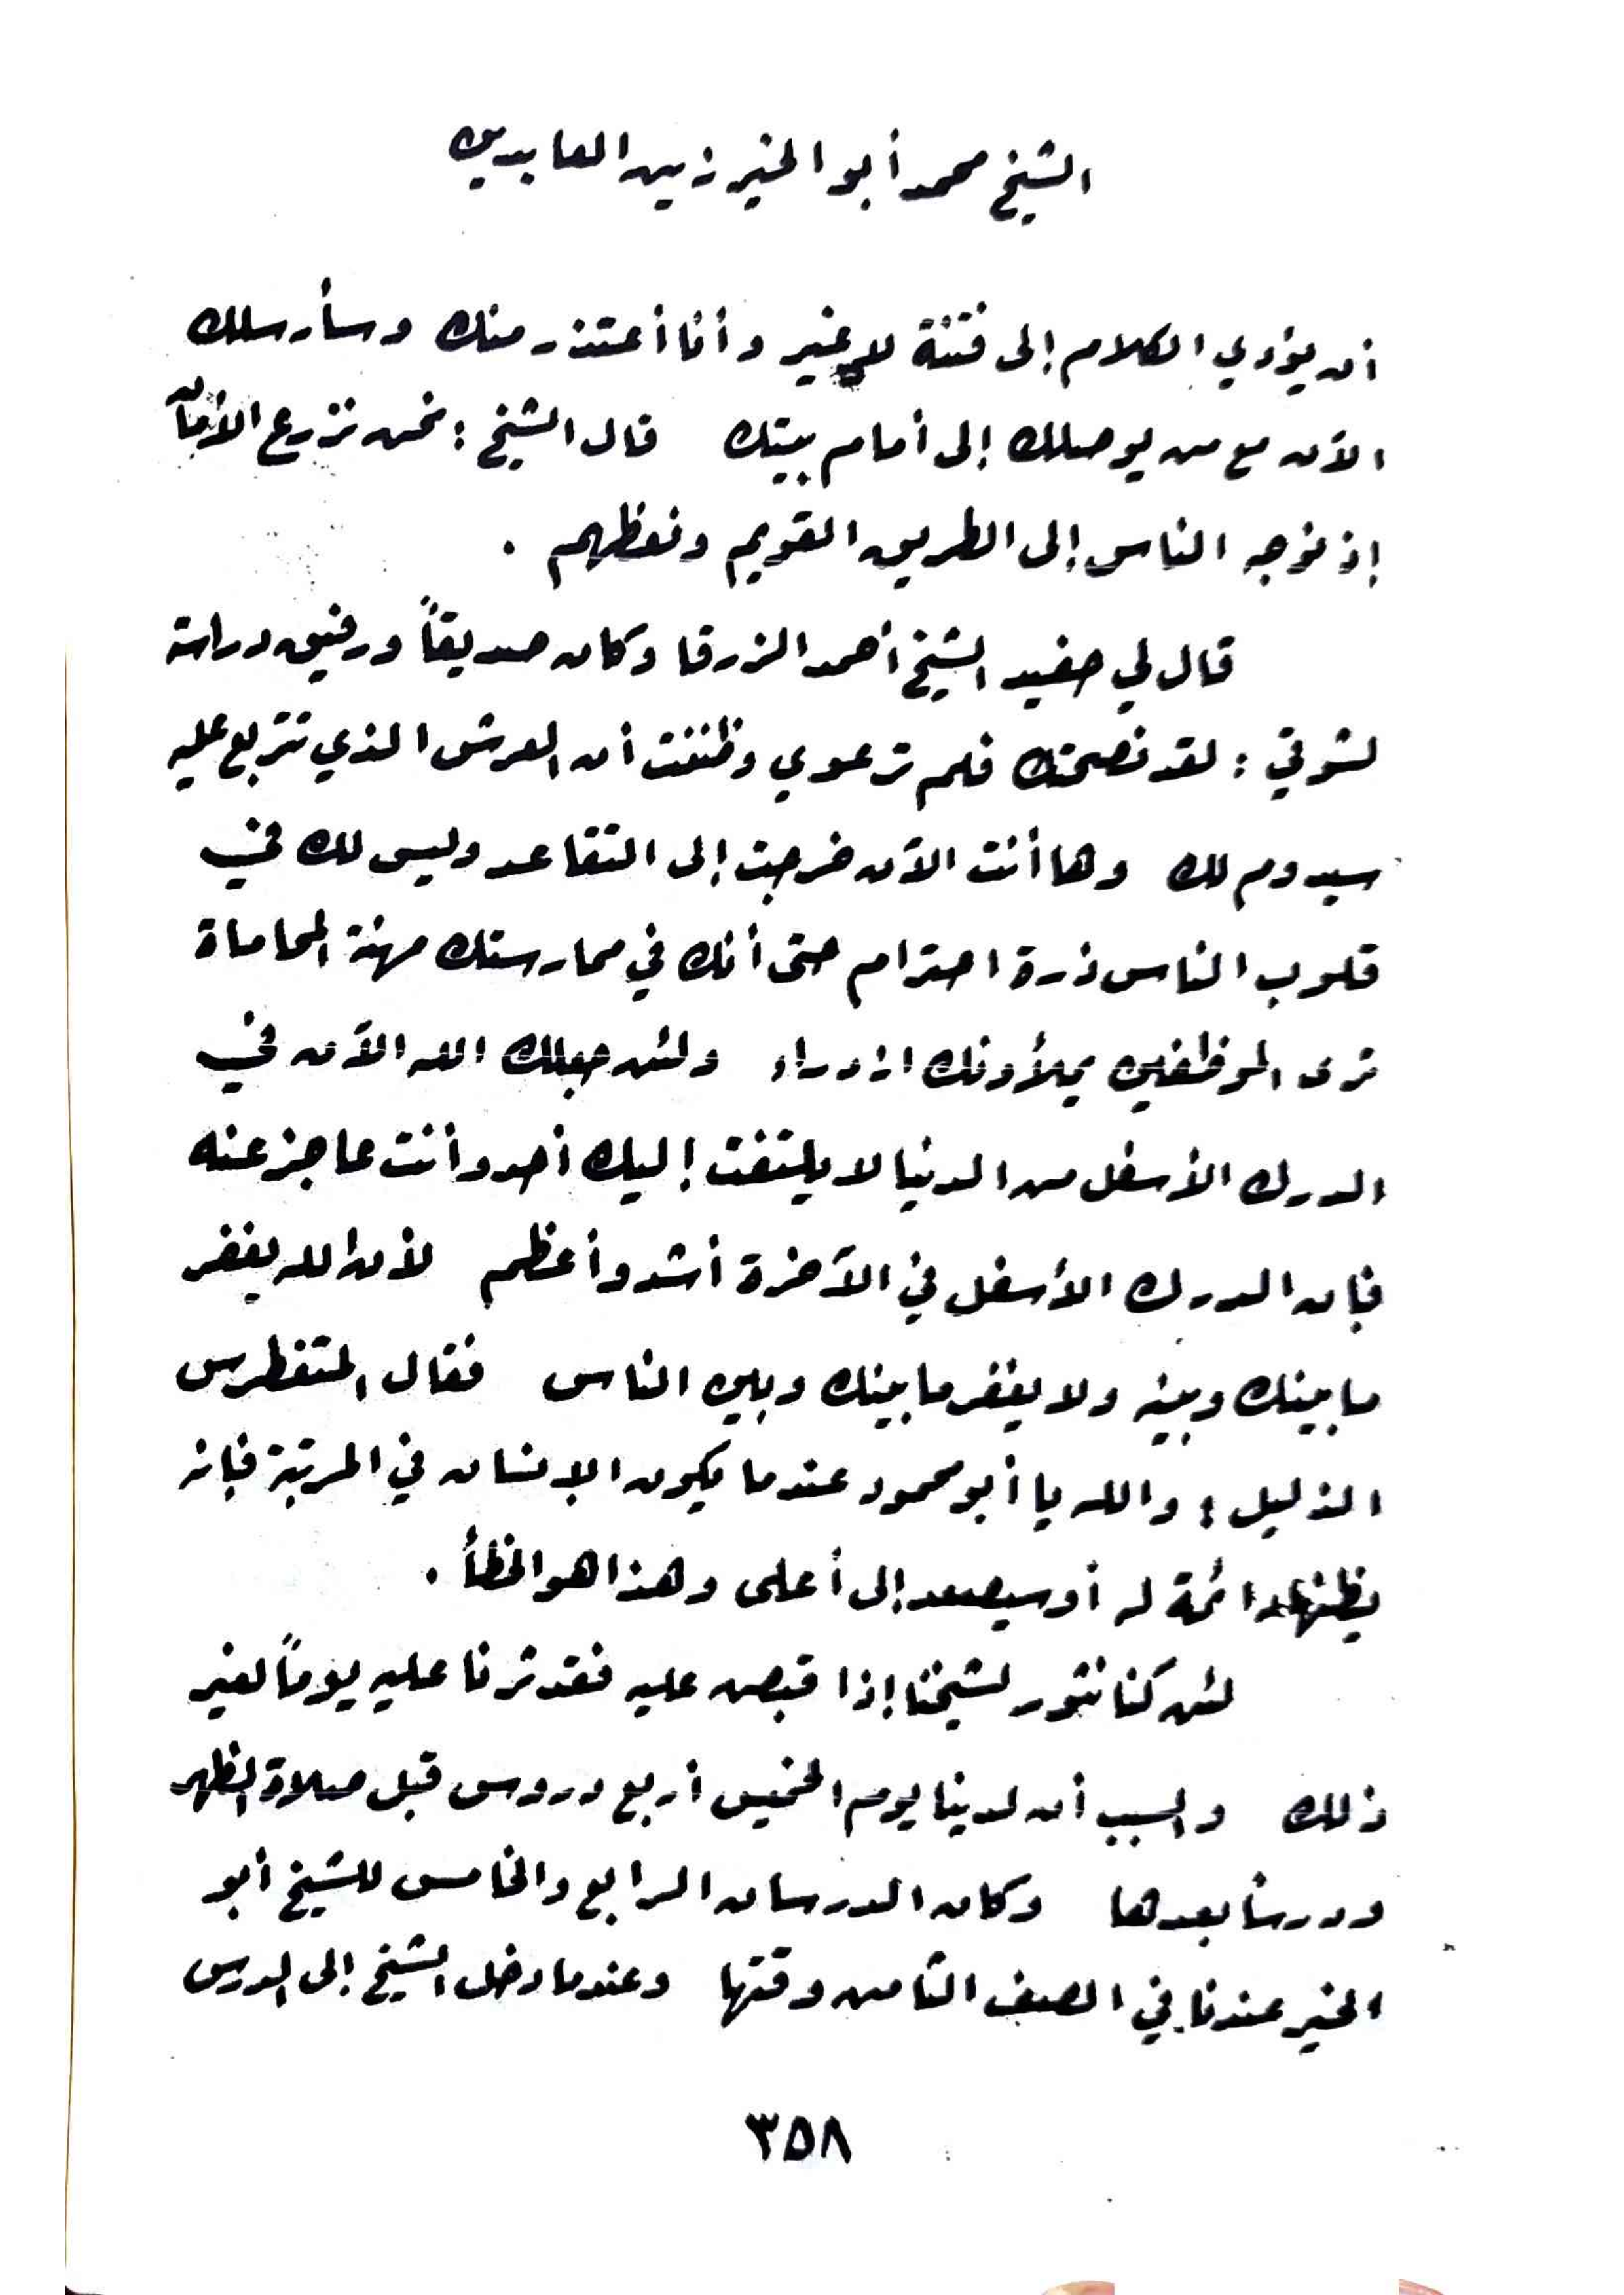 الشيخ محمد أبو الخير زين العابدين
أن يؤدي الكلام إلى فتنة لا غير وأنا أعتذر منك وسأرسلك
الآن مع من يوصلك إلى أمام بيتك قال الشيخ : نحن نزرع الأمان
إذ نوجه الناس إلى الطريق القويم ونعظهم .
قال لي حفيد الشيخ أحمد الزرقا وكان صديقاً ورفيق دراسة
لشوقي : لقد نصحتك فلم ترعوي وظننت أن العرش الذي تتربع عليه
سيدوم لك وها أنت الآن خرجت إلى التقاعد وليس لك في
قلوب الناس ذرة احترام حتى أنك في ممارستك مهنة المحاماة
ترى الموظفين يملأونك ازدراء ولئن جعلك الله الآن في
الدرك الأسفل من الدنيا لا يلتفت إليك أحد وأنت عاجز عنه
فإن الدرك الأسفل في الآخرة أشد وأعظم لأن الله يغفر
ما بينك وبينه ولا يغفر ما بينك وبين الناس فقال المتغطرس
الذليل : والله يا أبو محمود عندما يكون الإنسان في المرتبة فإنه
يظنها دائمة له أو سيصعد إلى أعلى وهذا هو الخطأ .
لئن كنا نثور لشيخنا إذا قبض عليه فقد ثرنا عليه يوماً لغير
ذلك والسبب أن لدينا يوم الخميس أربع دروس قبل صلاة الظهر
ودرساً بعدها وكان الدرسان الرابع والخامس للشيخ أبو
الخير عندنا في الصف الثامن وقتها وعندما دخل الشيخ إلى الدرس
٣٥٨